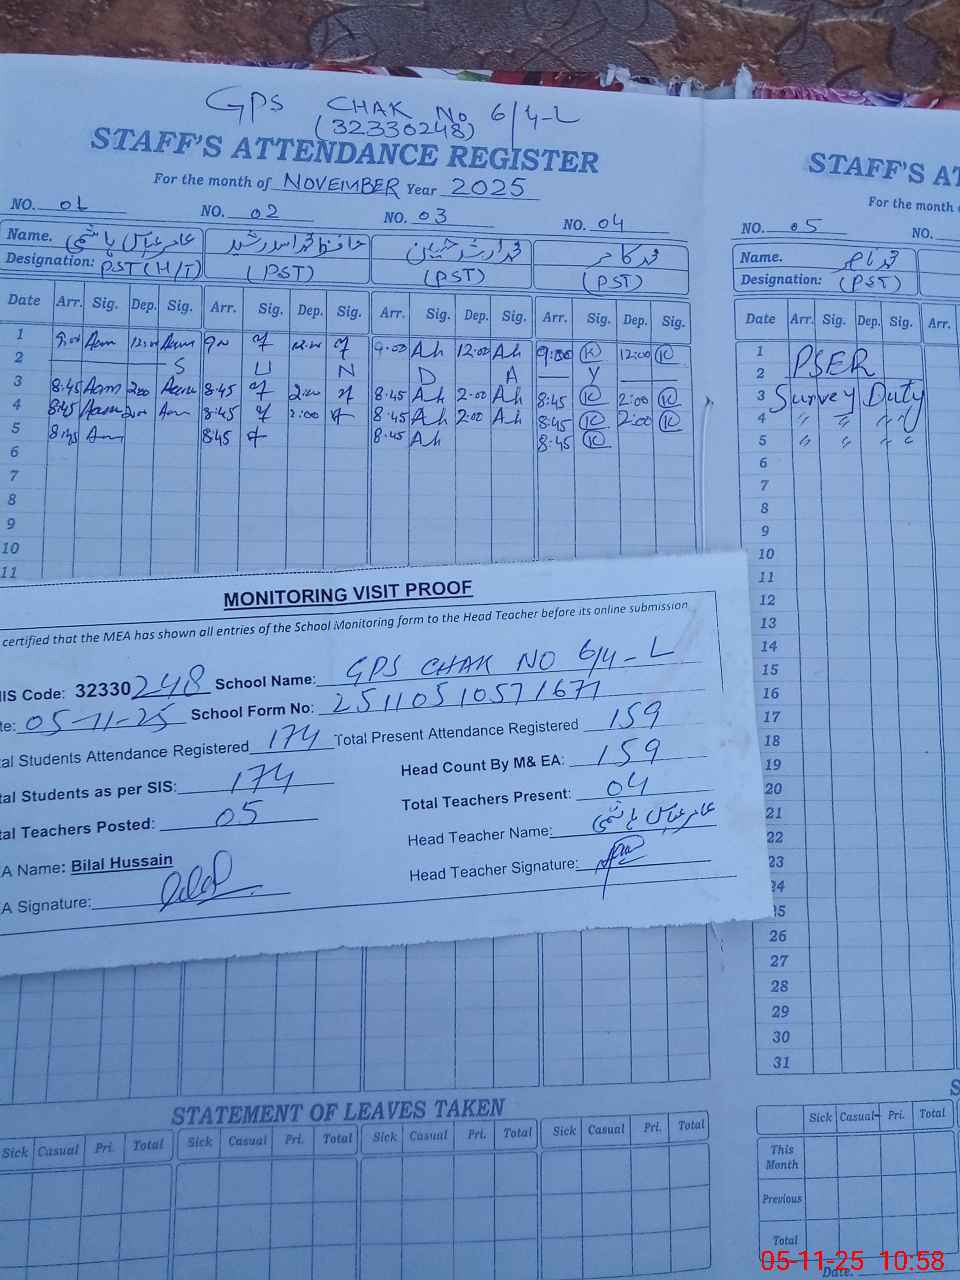 GPS CHAK No 6/4-L
(32330248)
STAFF'S ATTENDANCE REGISTER
For the month of NOVEMBER Year 2025
NO. 01 NO. 02 NO. 03 NO. 04
Name. عامر عباس ہاشمی حافظ محمد اسد رشید محمد ارشد حسین محمد کامر
Designation: PST (H/T) (PST) (PST) (PST)
Date Arr. Sig. Dep. Sig. Arr. Sig. Dep. Sig. Arr. Sig. Dep. Sig. Arr. Sig. Dep. Sig.
1 9:00 Aam 12:00 Aam 12:00 9:00 Ah 12:00 Ah 9:00 K 12:00 K
2 S U N D A Y
3 8:45 Aam 2:00 Aam 8:45 2:00 8:45 Ah 2:00 Ah 8:45 K 2:00 K
4 8:45 Aam 2:00 Am 8:45 2:00 8:45 Ah 2:00 Ah 8:45 K 2:00 K
5 8:45 Am 8:45 8:45 Ah 8:45 K
6
7
8
9
10
11
STAFF'S AT
For the month
NO. 05 NO.
Name.
Designation: (PST)
Date Arr. Sig. Dep. Sig. Arr.
1 PSER
2
3 Survey Duty
4 〃 〃 〃 〃
5 〃 〃 〃 〃
6
7
8
9
10
11
12
13
14
15
16
17
18
19
20
21
22
23
24
25
26
27
28
29
30
31
MONITORING VISIT PROOF
certified that the MEA has shown all entries of the School Monitoring form to the Head Teacher before its online submission
IS Code: 32330248 School Name: GPS CHAK NO 6/4-L
te: 05-11-25 School Form No: 25110510571677
al Students Attendance Registered 174 Total Present Attendance Registered 159
tal Students as per SIS: 174 Head Count By M& EA: 159
tal Teachers Posted: 05 Total Teachers Present: 04
A Name: Bilal Hussain Head Teacher Name: عامر عباس ہاشمی
A Signature: Bilal Head Teacher Signature:
STATEMENT OF LEAVES TAKEN
Sick Casual Pri. Total Sick Casual Pri. Total Sick Casual Pri. Total Sick Casual Pri. Total
S
Sick Casual Pri. Total
This Month
Previous
Total
Date.
05-11-25 10:58